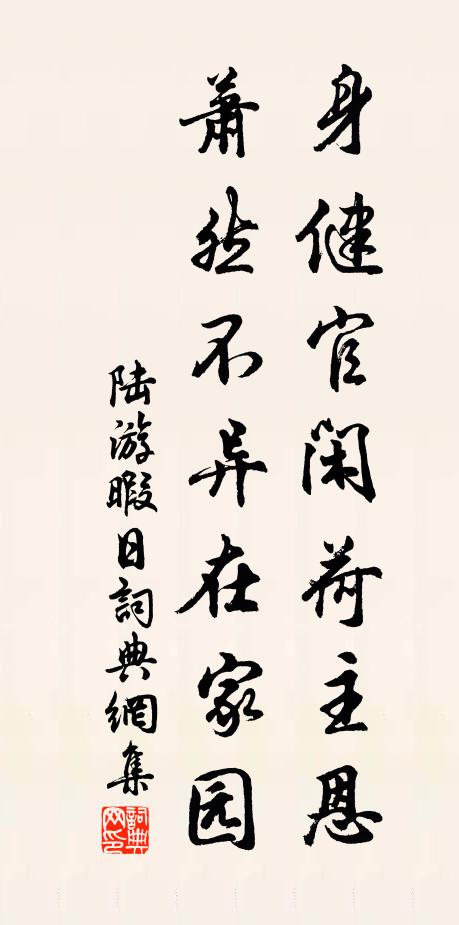 身健官閑荷主恩
蕭然不异在家园
陆游暇日詞典網集
詞典网印